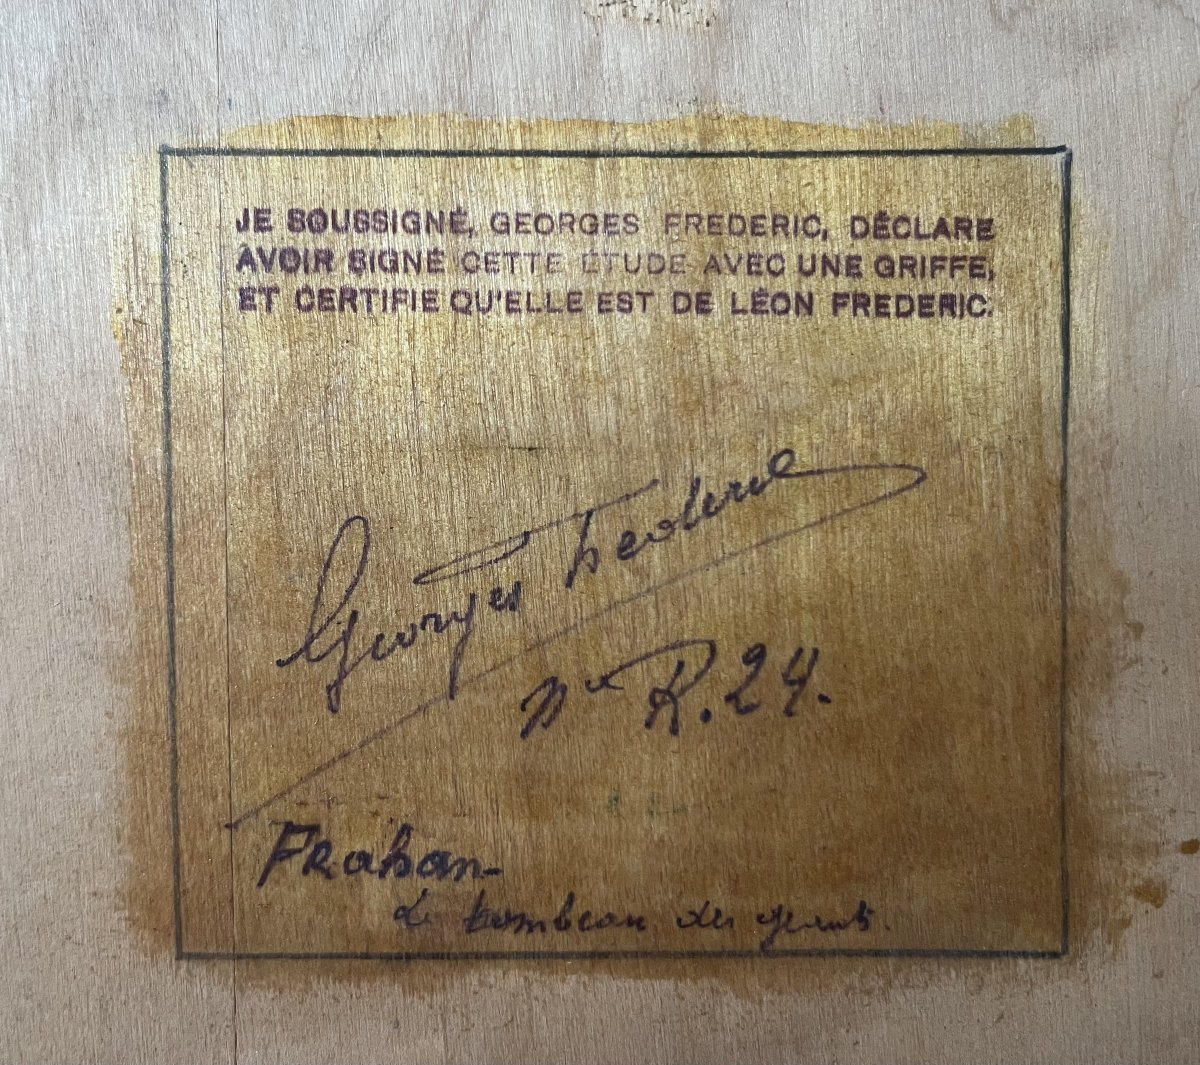 JE SOUSSIGNÉ, GEORGES FREDERIC, DÉCLARE
AVOIR SIGNÉ CETTE ÉTUDE AVEC UNE GRIFFE,
ET CERTIFIE QU'ELLE EST DE LÉON FREDERIC.
Georges Frederic
R.24.
Frahan-
Le tombeau des géants.